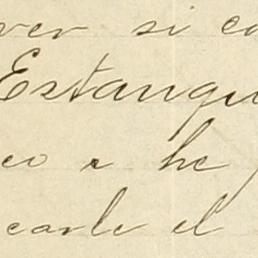 ver si ca
Estanqu
co a he
carle el